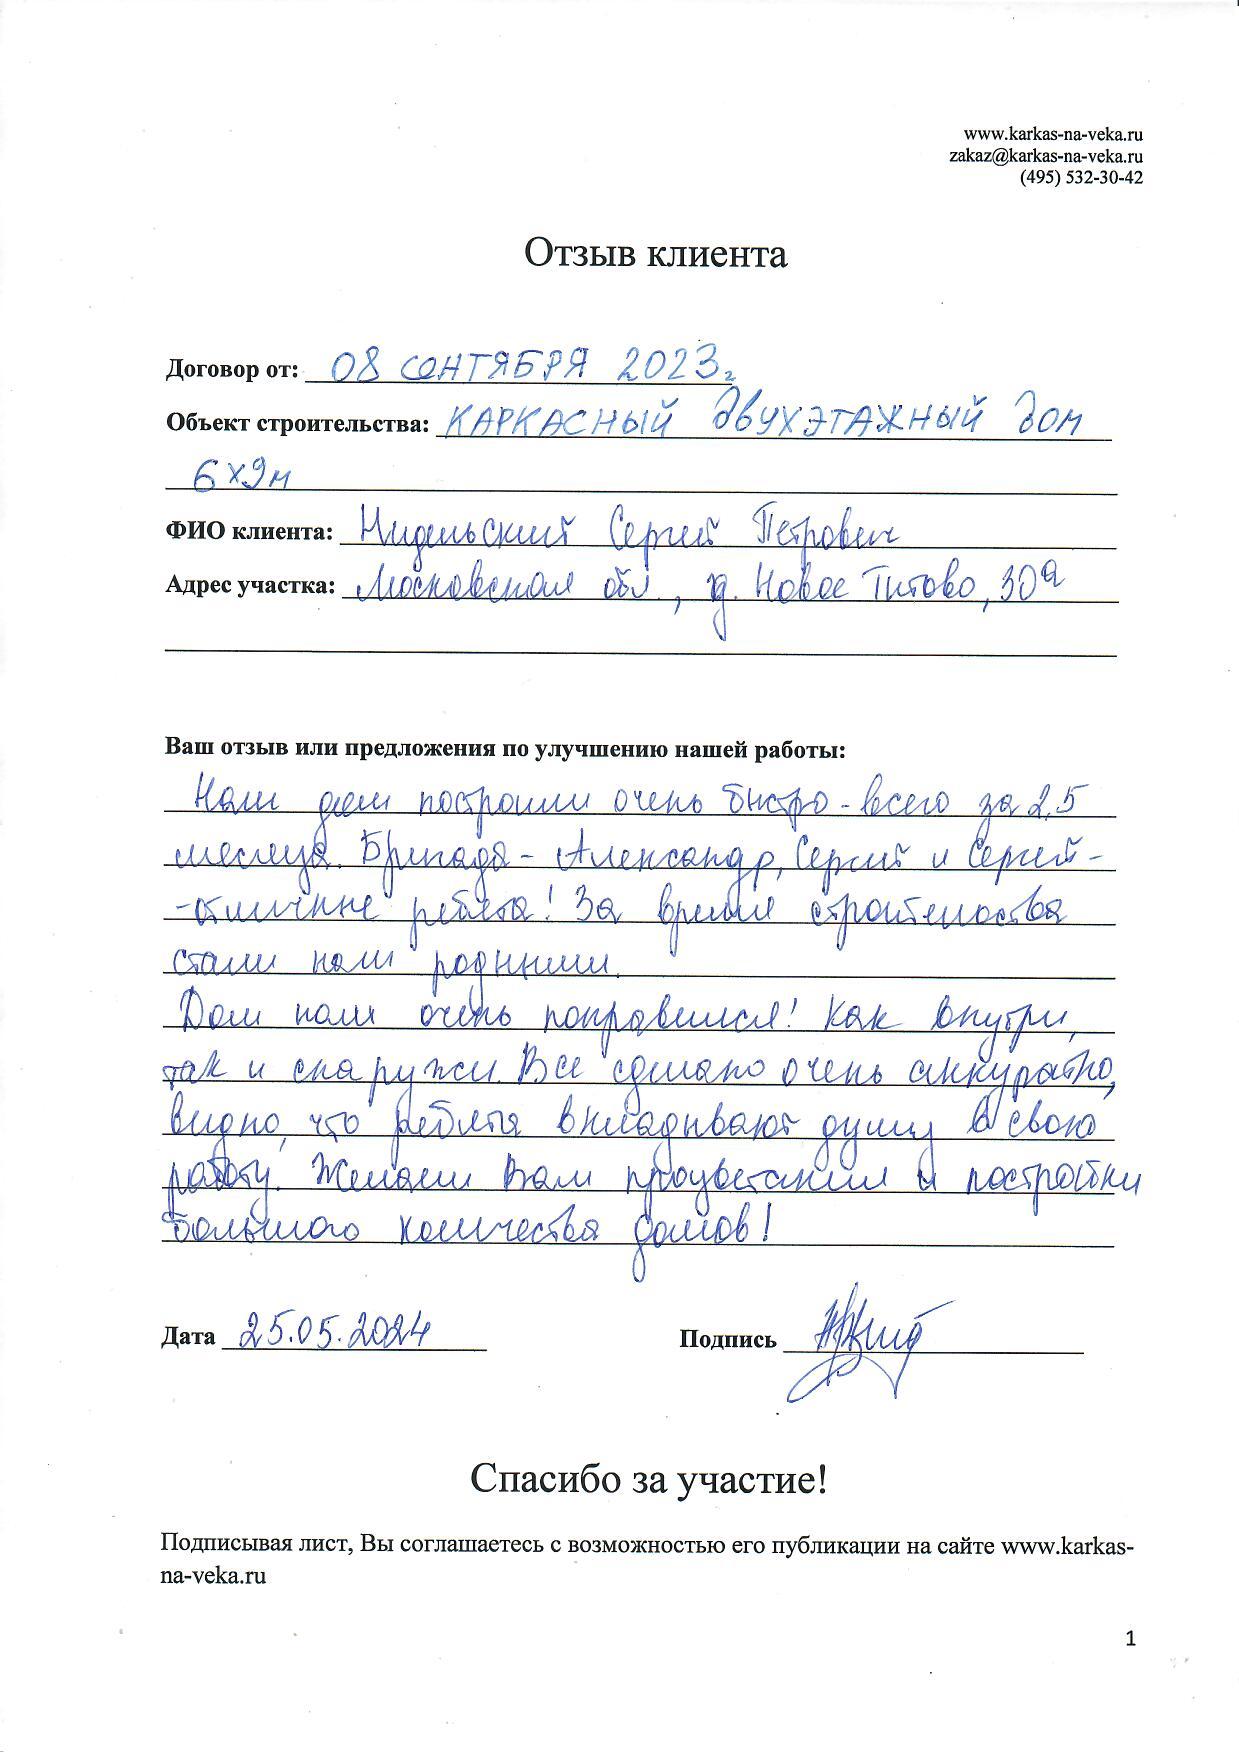 www.karkas-na-veka.ru
zakaz@karkas-na-veka.ru
(495) 532-30-42
Отзыв клиента
Договор от: 08 СЕНТЯБРЯ 2023г
Объект строительства: КАРКАСНЫЙ ДВУХЭТАЖНЫЙ ДОМ
6х9м
ФИО клиента: Нидельский Сергей Петрович
Адрес участка: Московская обл., д. Новое Титово, 30а
Ваш отзыв или предложения по улучшению нашей работы:
Наш дом построили очень быстро - всего за 2,5
месяца. Бригада - Александр, Сергей и Сергей -
- отличные ребята! За время строительства
стали нам родными.
Дом нам очень понравился! Как внутри,
так и снаружи. Все сделано очень аккуратно,
видно, что ребята вкладывают душу в свою
работу. Желаем Вам процветания и постройки
большого количества домов!
Дата 25.05.2024 Подпись
Спасибо за участие!
Подписывая лист, Вы соглашаетесь с возможностью его публикации на сайте www.karkas-
na-veka.ru
1